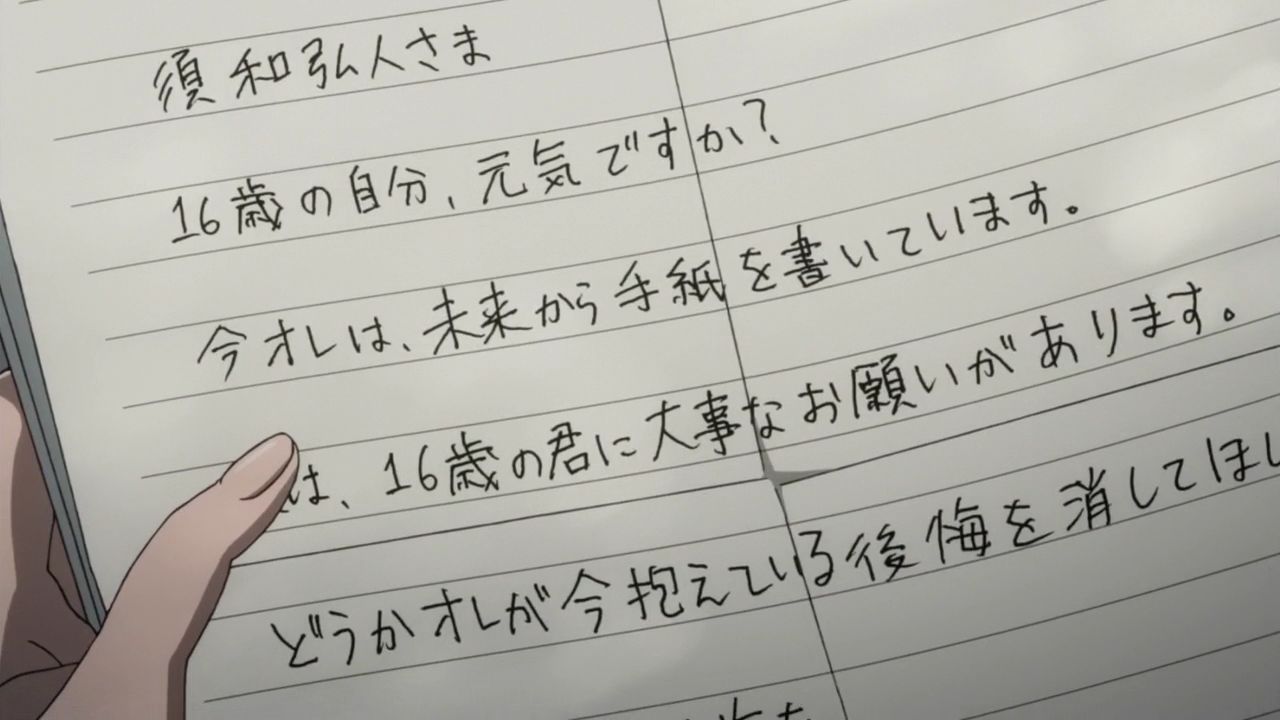 須和弘人さま
16歳の自分、元気ですか?
今オレは、未来から手紙を書いています。
は、16歳の君に大事なお願いがあります。
どうかオレが今抱えている後悔を消してほし